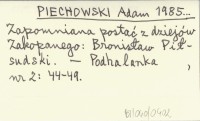 PIECHOWSKI Adam 1985...
Zapomniana postać z dziejów
Zakopanego: Bronisław Pił-
sudski. — Podhalanka ,
nr 2: 44-49.